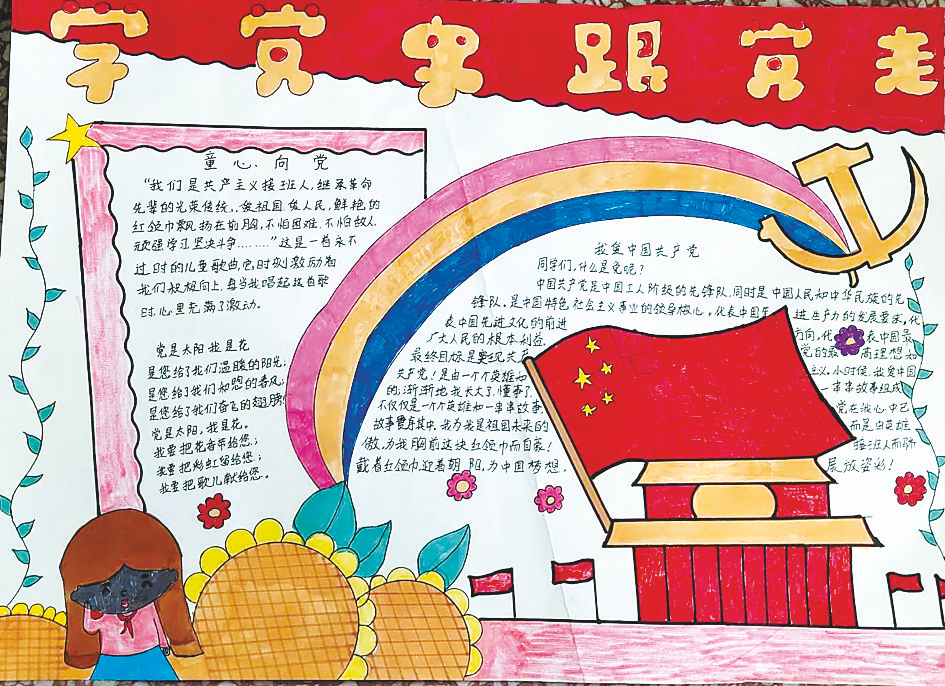 学党史跟党走
童心、向党
“我们是共产主义接班人，继承革命
先辈的光荣传统，，爱祖国爱人民，鲜艳的
红领巾飘扬在前胸，不怕困难、不怕敌人，
顽强学习，坚决斗争………”这是一首永不
过时的儿童歌曲，它时刻激励着
我们积极向上，每当我唱起这首歌
时，心里充满了激动。
党是太阳我是花
是您给了我们温暖的阳光；
是您给了我们和煦的春风；
是您给了我们奋飞的翅膀！
党是太阳，我是花。
我要把花香带给您；
我要把彩虹留给您；
我要把歌儿献给您。
我爱中国共产党
同学们，什么是党呢？
中国共产党是中国工人阶级的先锋队，同时是中国人民和中华民族的先
锋队，是中国特色社会主义事业的领导核心，代表中国先 进生产力的发展要求，代
表中国先进文化的前进 方向，代 表中国最
广大人民的根本利益 党的最 高理想和
最终目标是实现共产 主义，小时候，我爱中国
共产党！是由一个个英雄和 一串串故事组成
的；渐渐地我长大了，懂事了， 党在我心中已
不仅仅是一个个英雄和一串串故事， 而是由英雄
故事 其中，我为我是祖国未来的 接班人而骄
傲，为我胸前这块红领巾而自豪！
戴着红领巾，迎着朝阳，为中国梦想， 展放姿彩！